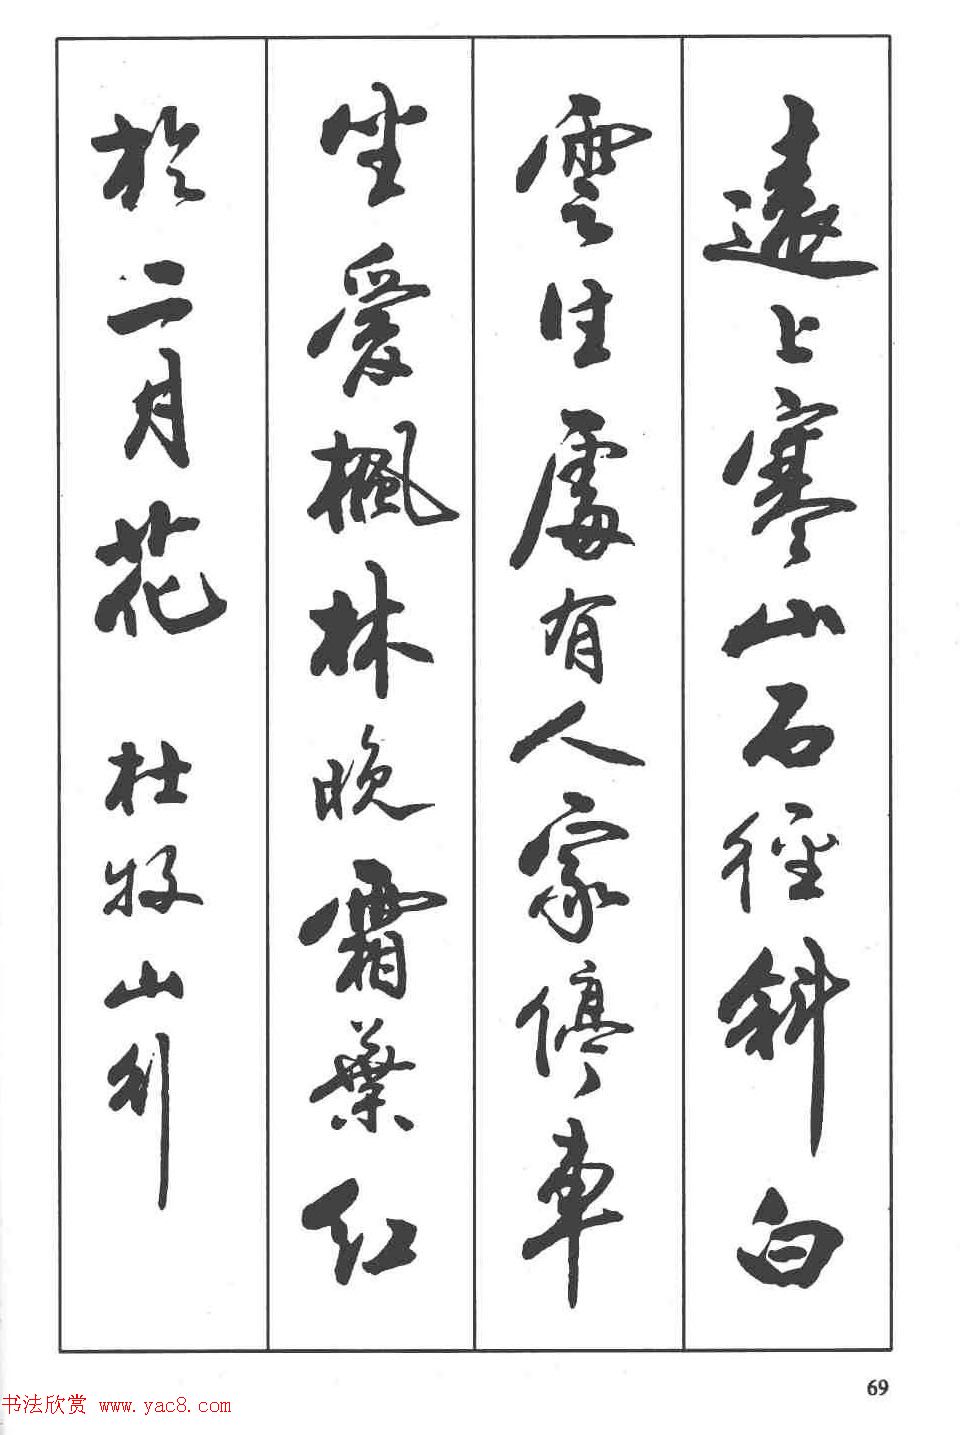 遠上寒山石徑斜白
雲生處有人家停車
坐愛楓林晚霜葉紅
於二月花 杜牧山行
69
书法欣赏 www.yac8.com